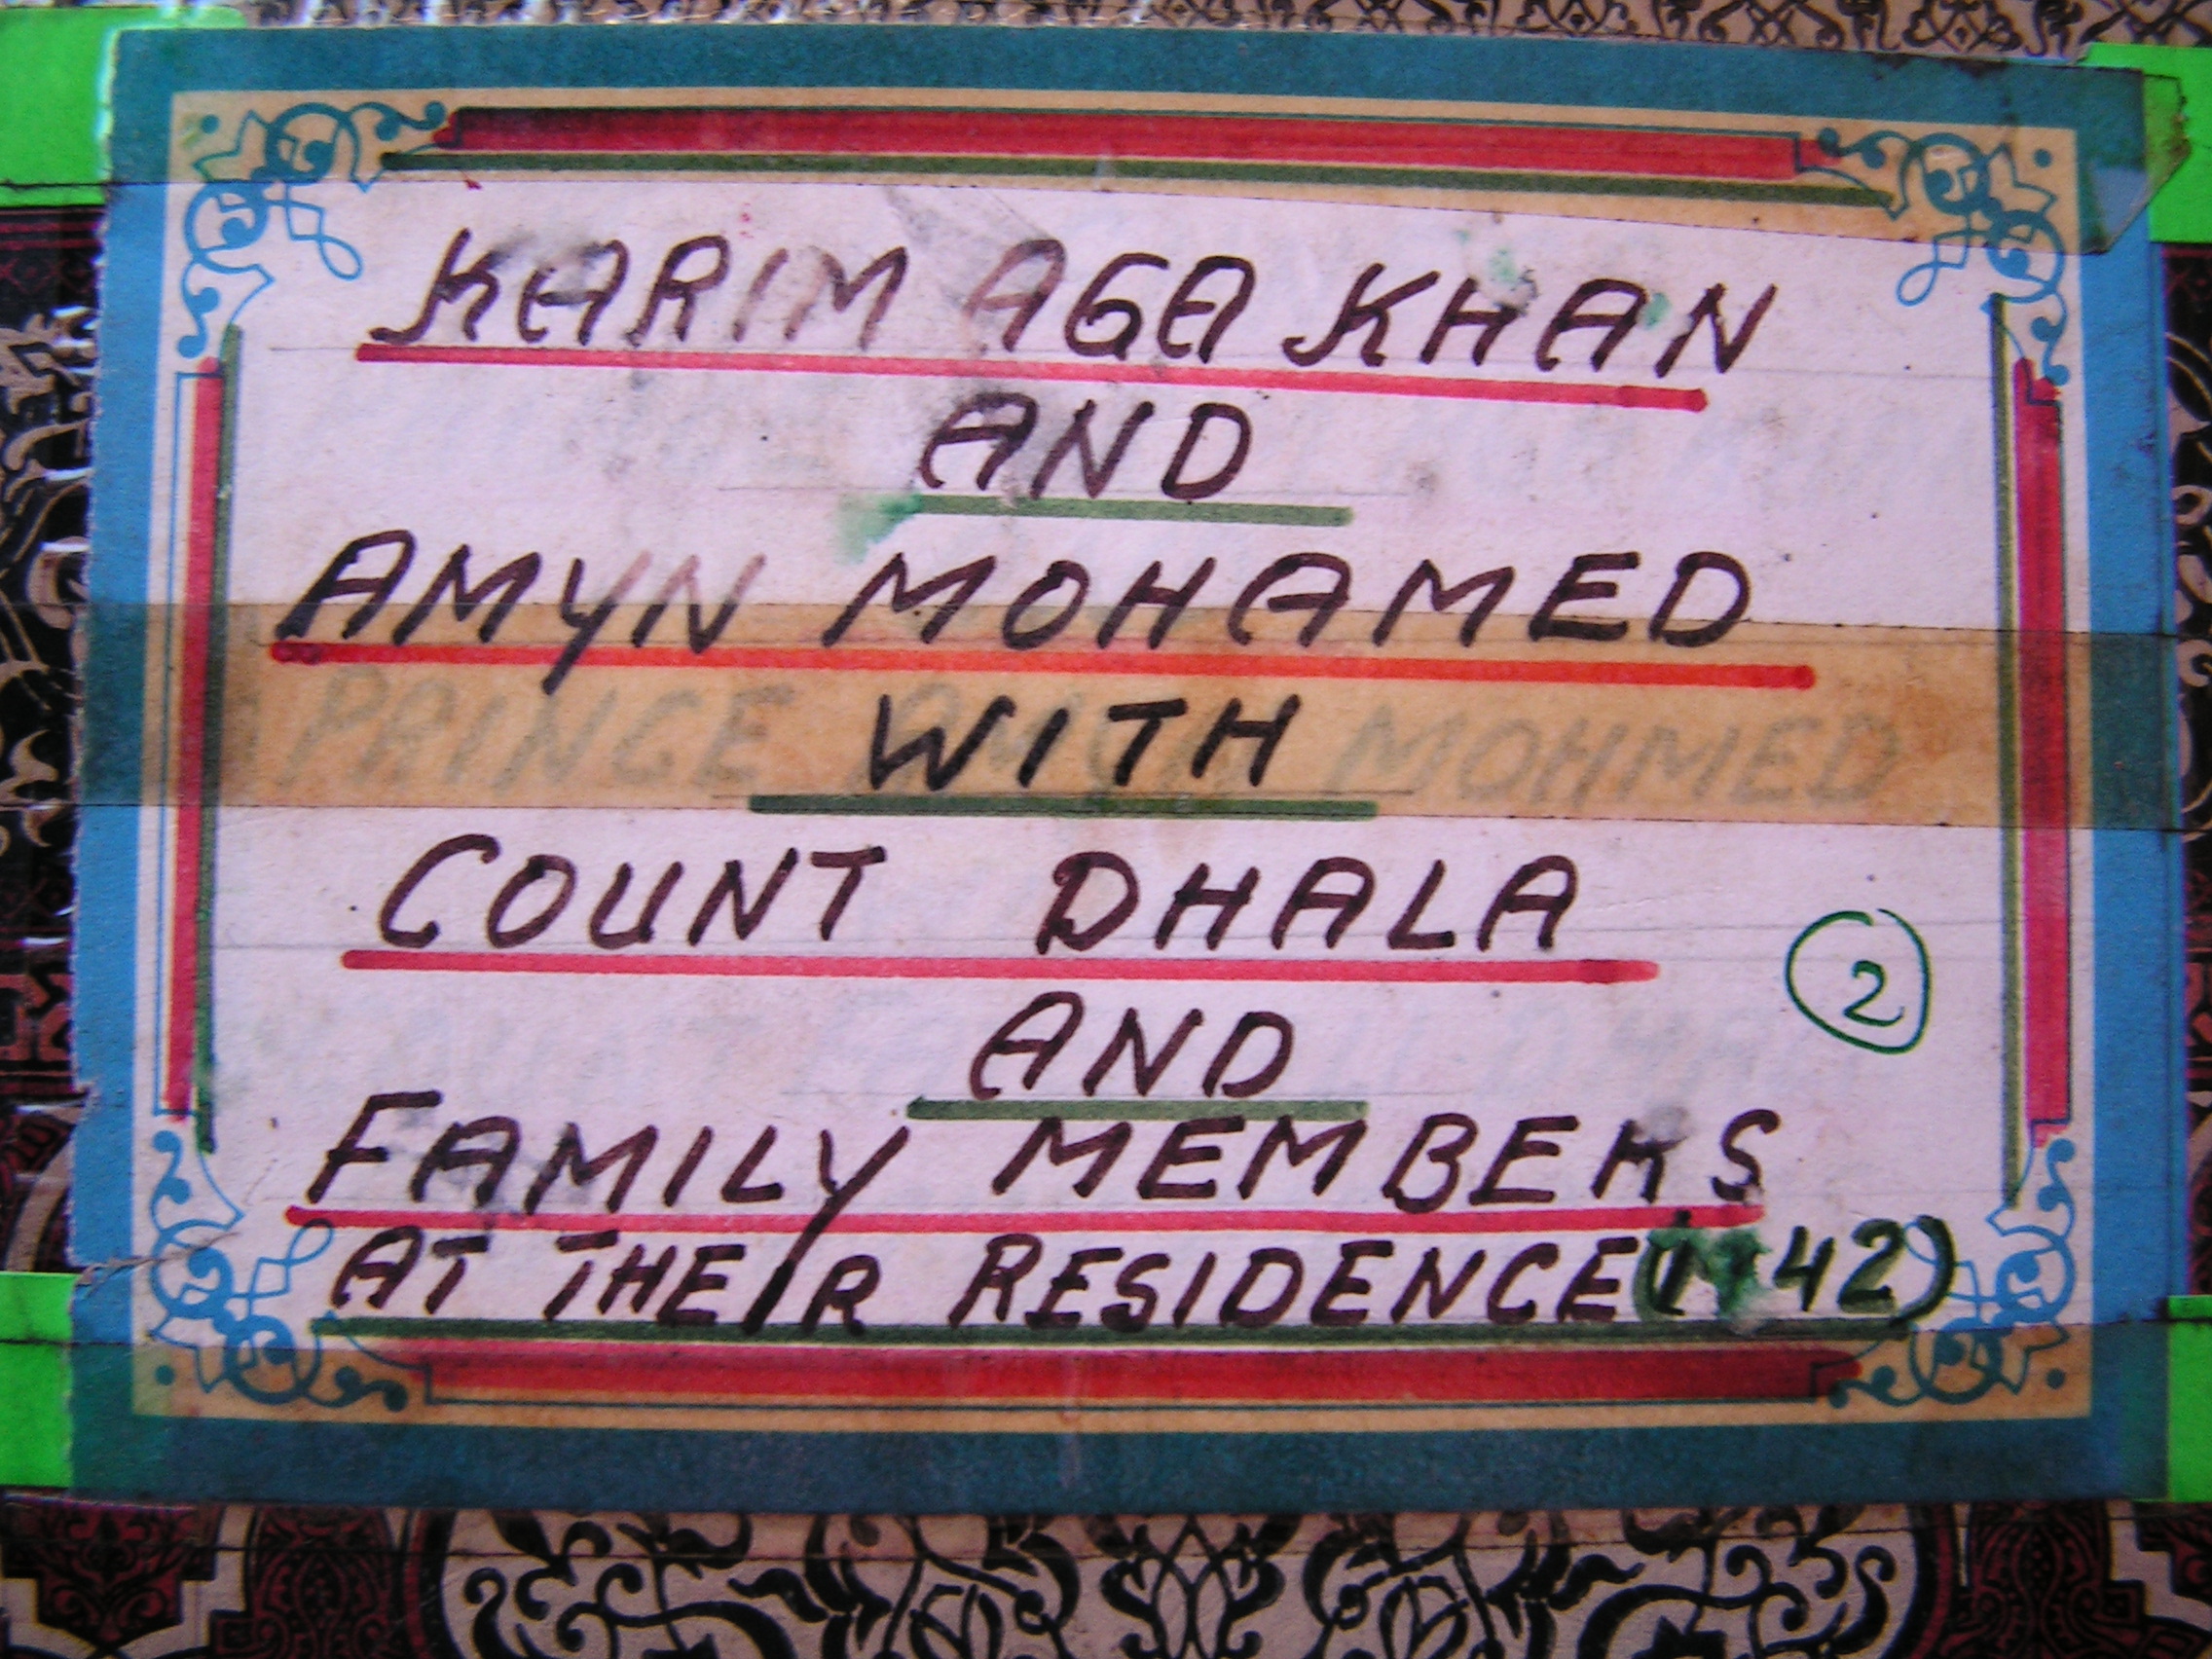 KARIM AGA KHAN
AND
AMYN MOHAMED
WITH
PRINCE MOHMED
COUNT DHALA
2
AND
FAMILY MEMBERS
AT THEIR RESIDENCE 42)